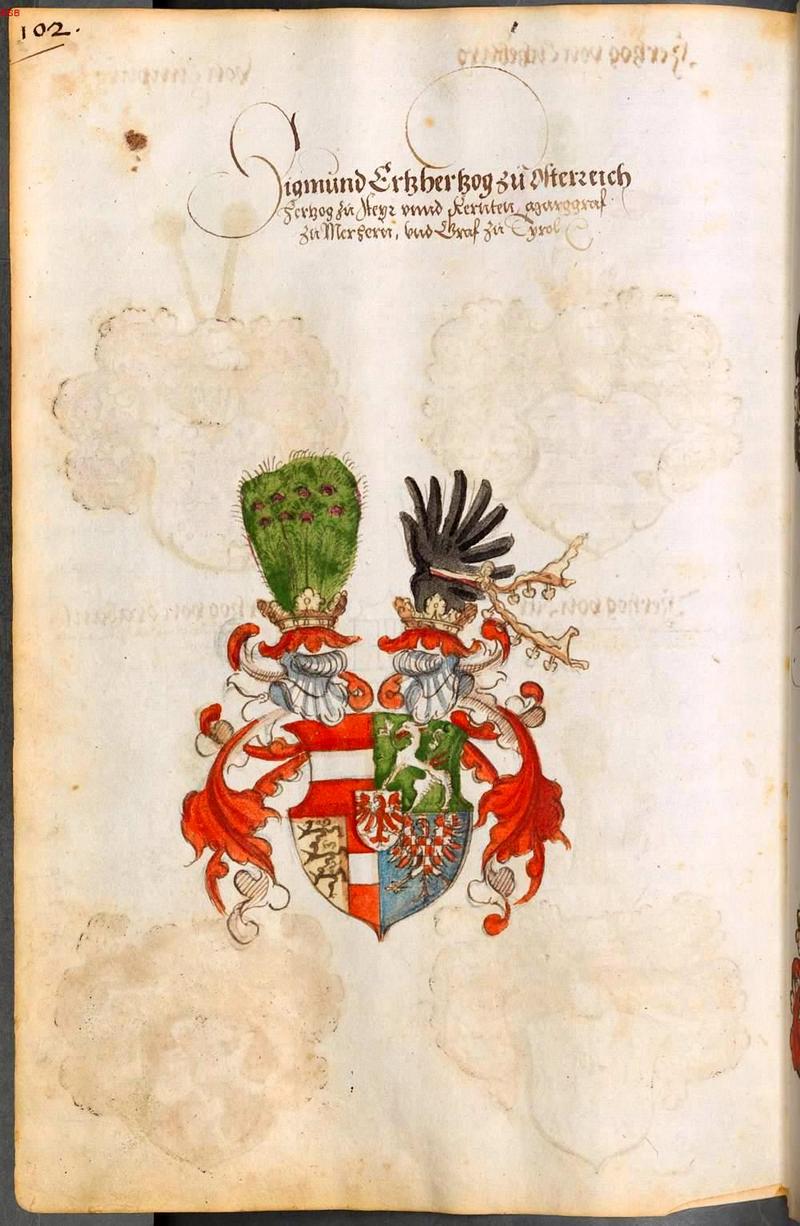 BSB
102.
Sigmünd Ertzhertzog zü Osterreich
Hertzog zu Steyr vnnd Kernten, Marggraf
zu Merhern, vnd Graf zu Tyrol